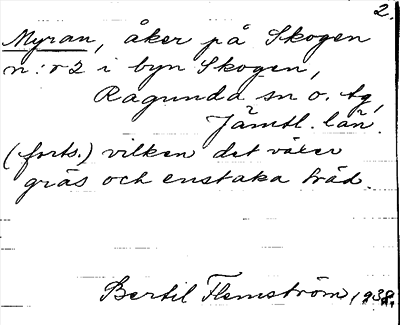 2.
Myran, åker på Skogen
n:r 2 i byn Skogen,
Ragunda sn o. tg,
Jämtl. län.
(forts.) vilken det växer
gräs och enstaka träd.
Bertil Flemström, 1938.